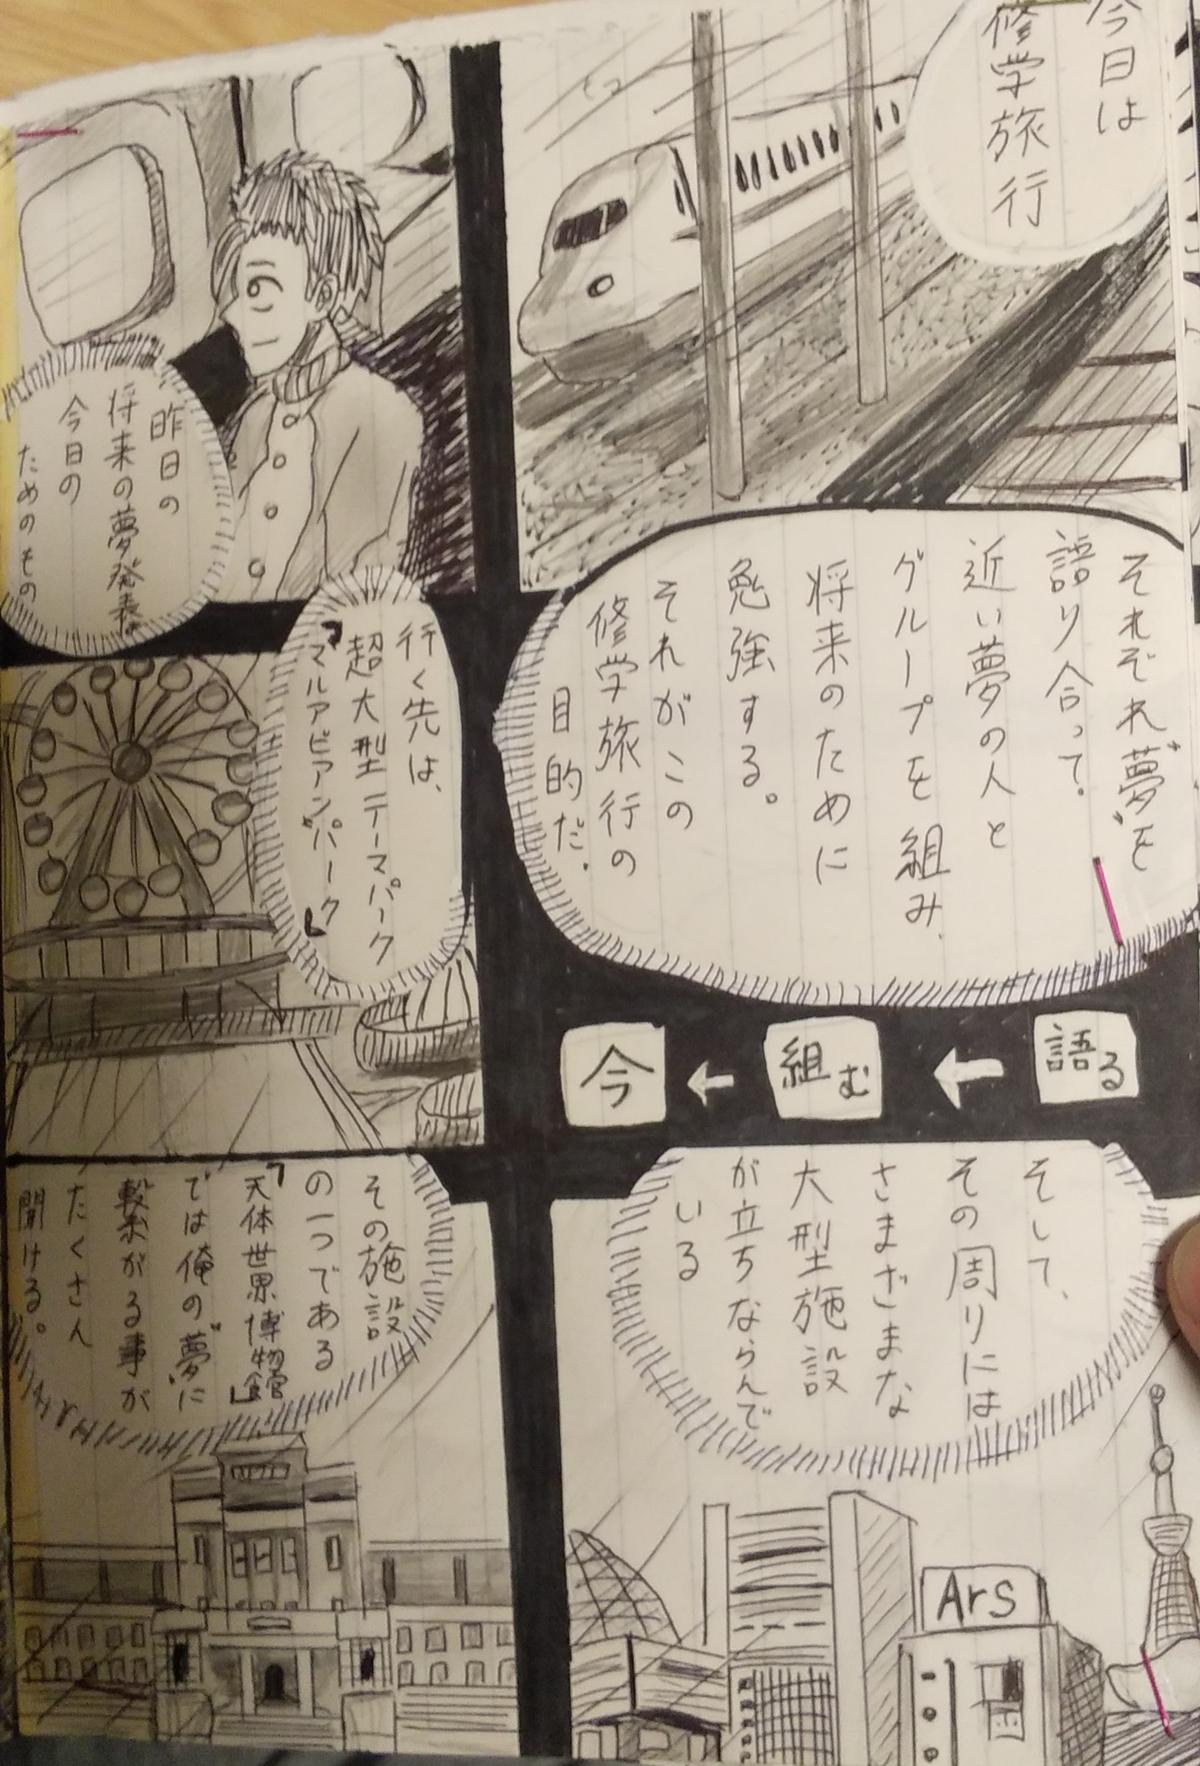 今日は
修学旅行
昨日の
将来の夢発表
今日の
ためのもの
それぞれ〝夢〟を
語り合って、
近い夢の人と
グループを組み、
将来のために
勉強する。
それがこの
修学旅行の
目的だ。
語る
組む
今
行く先は、
超大型テーマパーク
『マルアビアンパーク』
そして、
その周りには
さまざまな
大型施設
が立ちならんで
いる
Ars
その施設
の一つである
『天体世界博物館』
では俺の〝夢〟に
繋がる事が
たくさん
開ける。